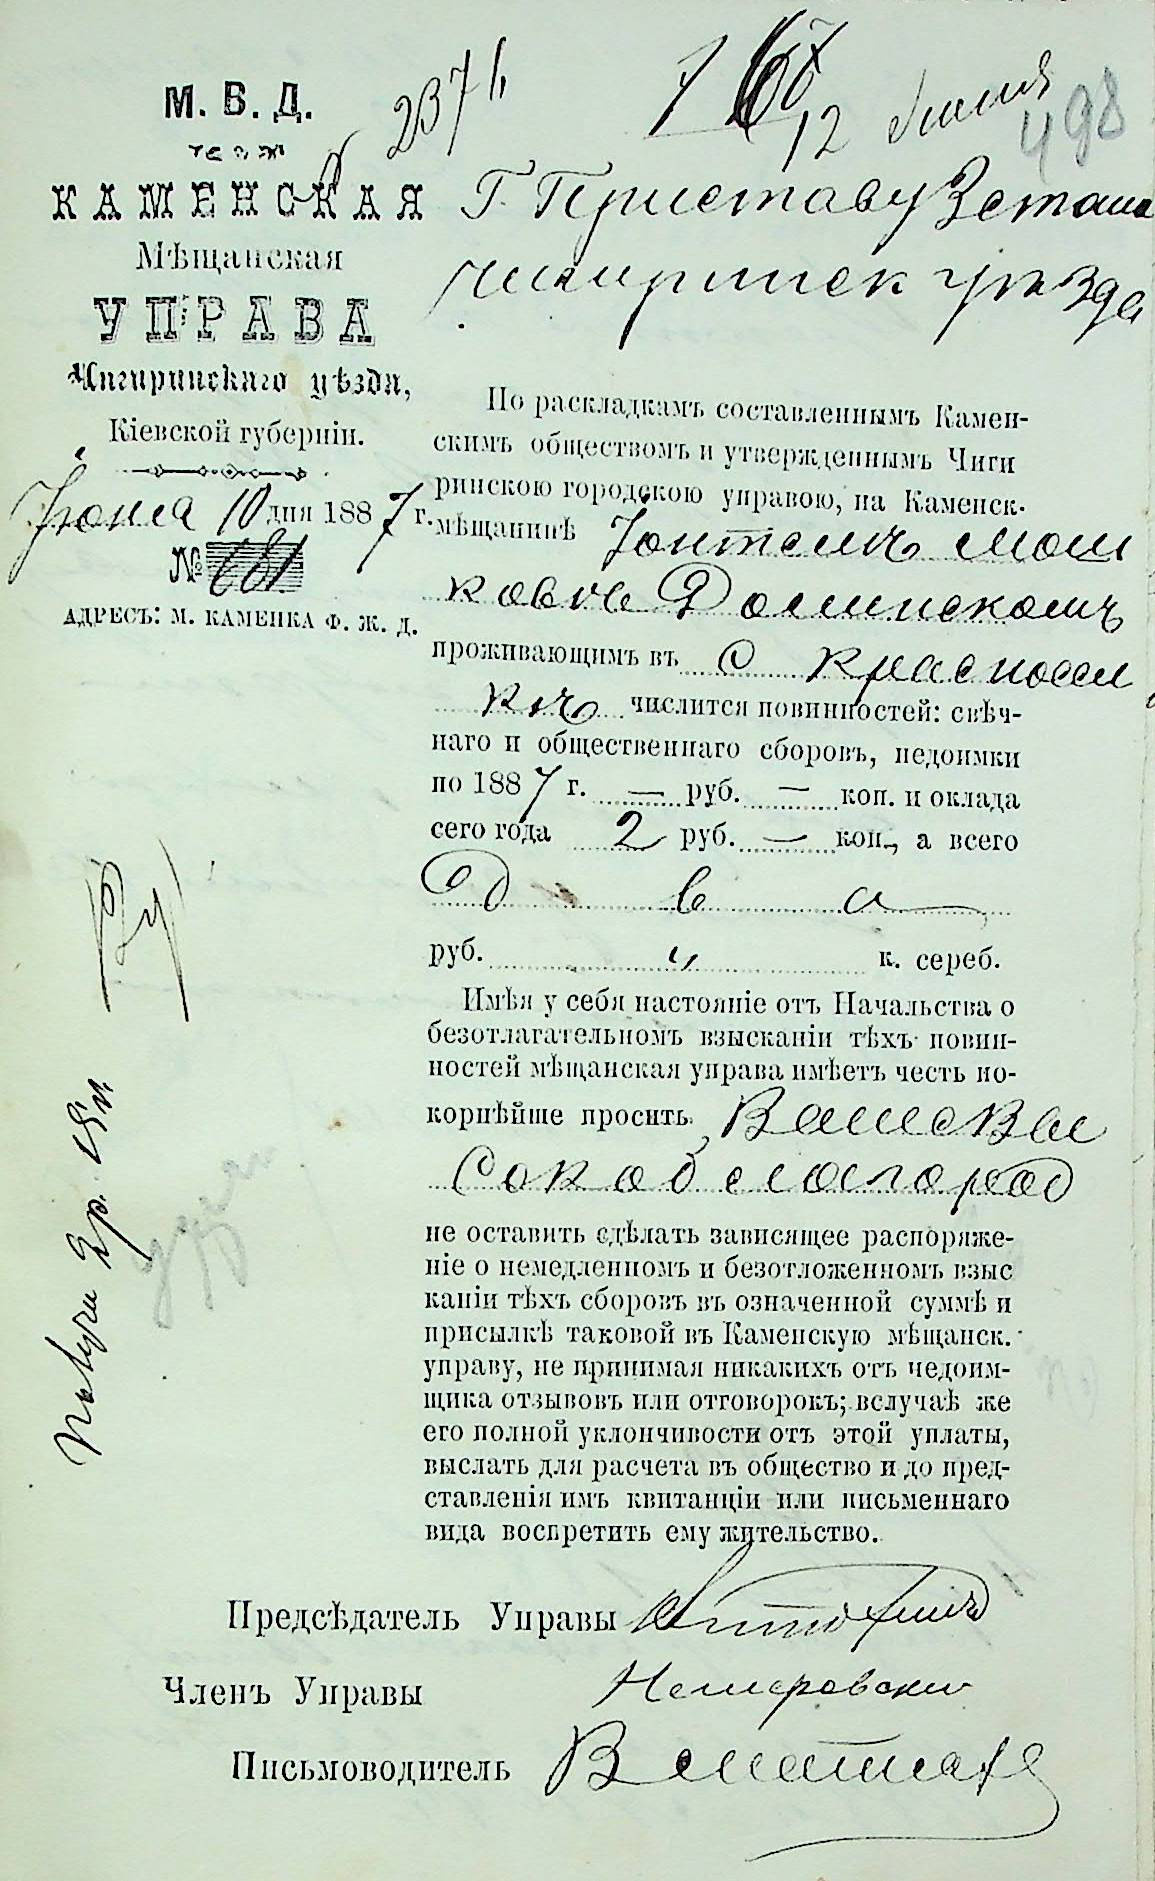 М. В. Д.
КАМЕНСКАЯ
Мѣщанская
УПРАВА
Чигиринскаго уѣзда,
Кіевской губерніи.
Іюня 10 дня 1887 г.
№ 681
АДРЕСЪ: М. КАМЕНКА Ф. Ж. Д.
2371
12
498
Г. Приставу 3 стана
Чигиринск уѣзда
По раскладкамъ составленнымъ Камен-
скимъ обществомъ и утвержденнымъ Чиги
ринскою городскою управою, на Каменск.
мѣщанинѣ Іонтелѣ Мош
ковѣ Долинскомъ
проживающимъ въ с Красносел
кѣ числится повинностей: свѣч-
наго и общественнаго сборовъ, недоимки
по 1887 г. — руб. — коп. и оклада
сего года 2 руб. — коп., а всего
Два
руб. " к. сереб.
Имѣя у себя настояніе отъ Начальства о
безотлагательномъ взысканіи тѣхъ повин-
ностей мѣщанская управа имѣетъ честь по-
корнѣйше просить, Ваше Вы
сокоблагород
не оставить сдѣлать зависящее распоряже-
ніе о немедленномъ и безотложенномъ взыс
каніи тѣхъ сборовъ въ означенной суммѣ и
присылкѣ таковой въ Каменскую мѣщанск.
управу, не принимая никакихъ отъ недоим-
щика отзывовъ или отговорокъ; вслучаѣ же
его полной уклончивости отъ этой уплаты,
выслать для расчета въ общество и до пред-
ставленія имъ квитанціи или письменнаго
вида воспретить ему жительство.
Предсѣдатель Управы
Членъ Управы Немеровски
Письмоводитель